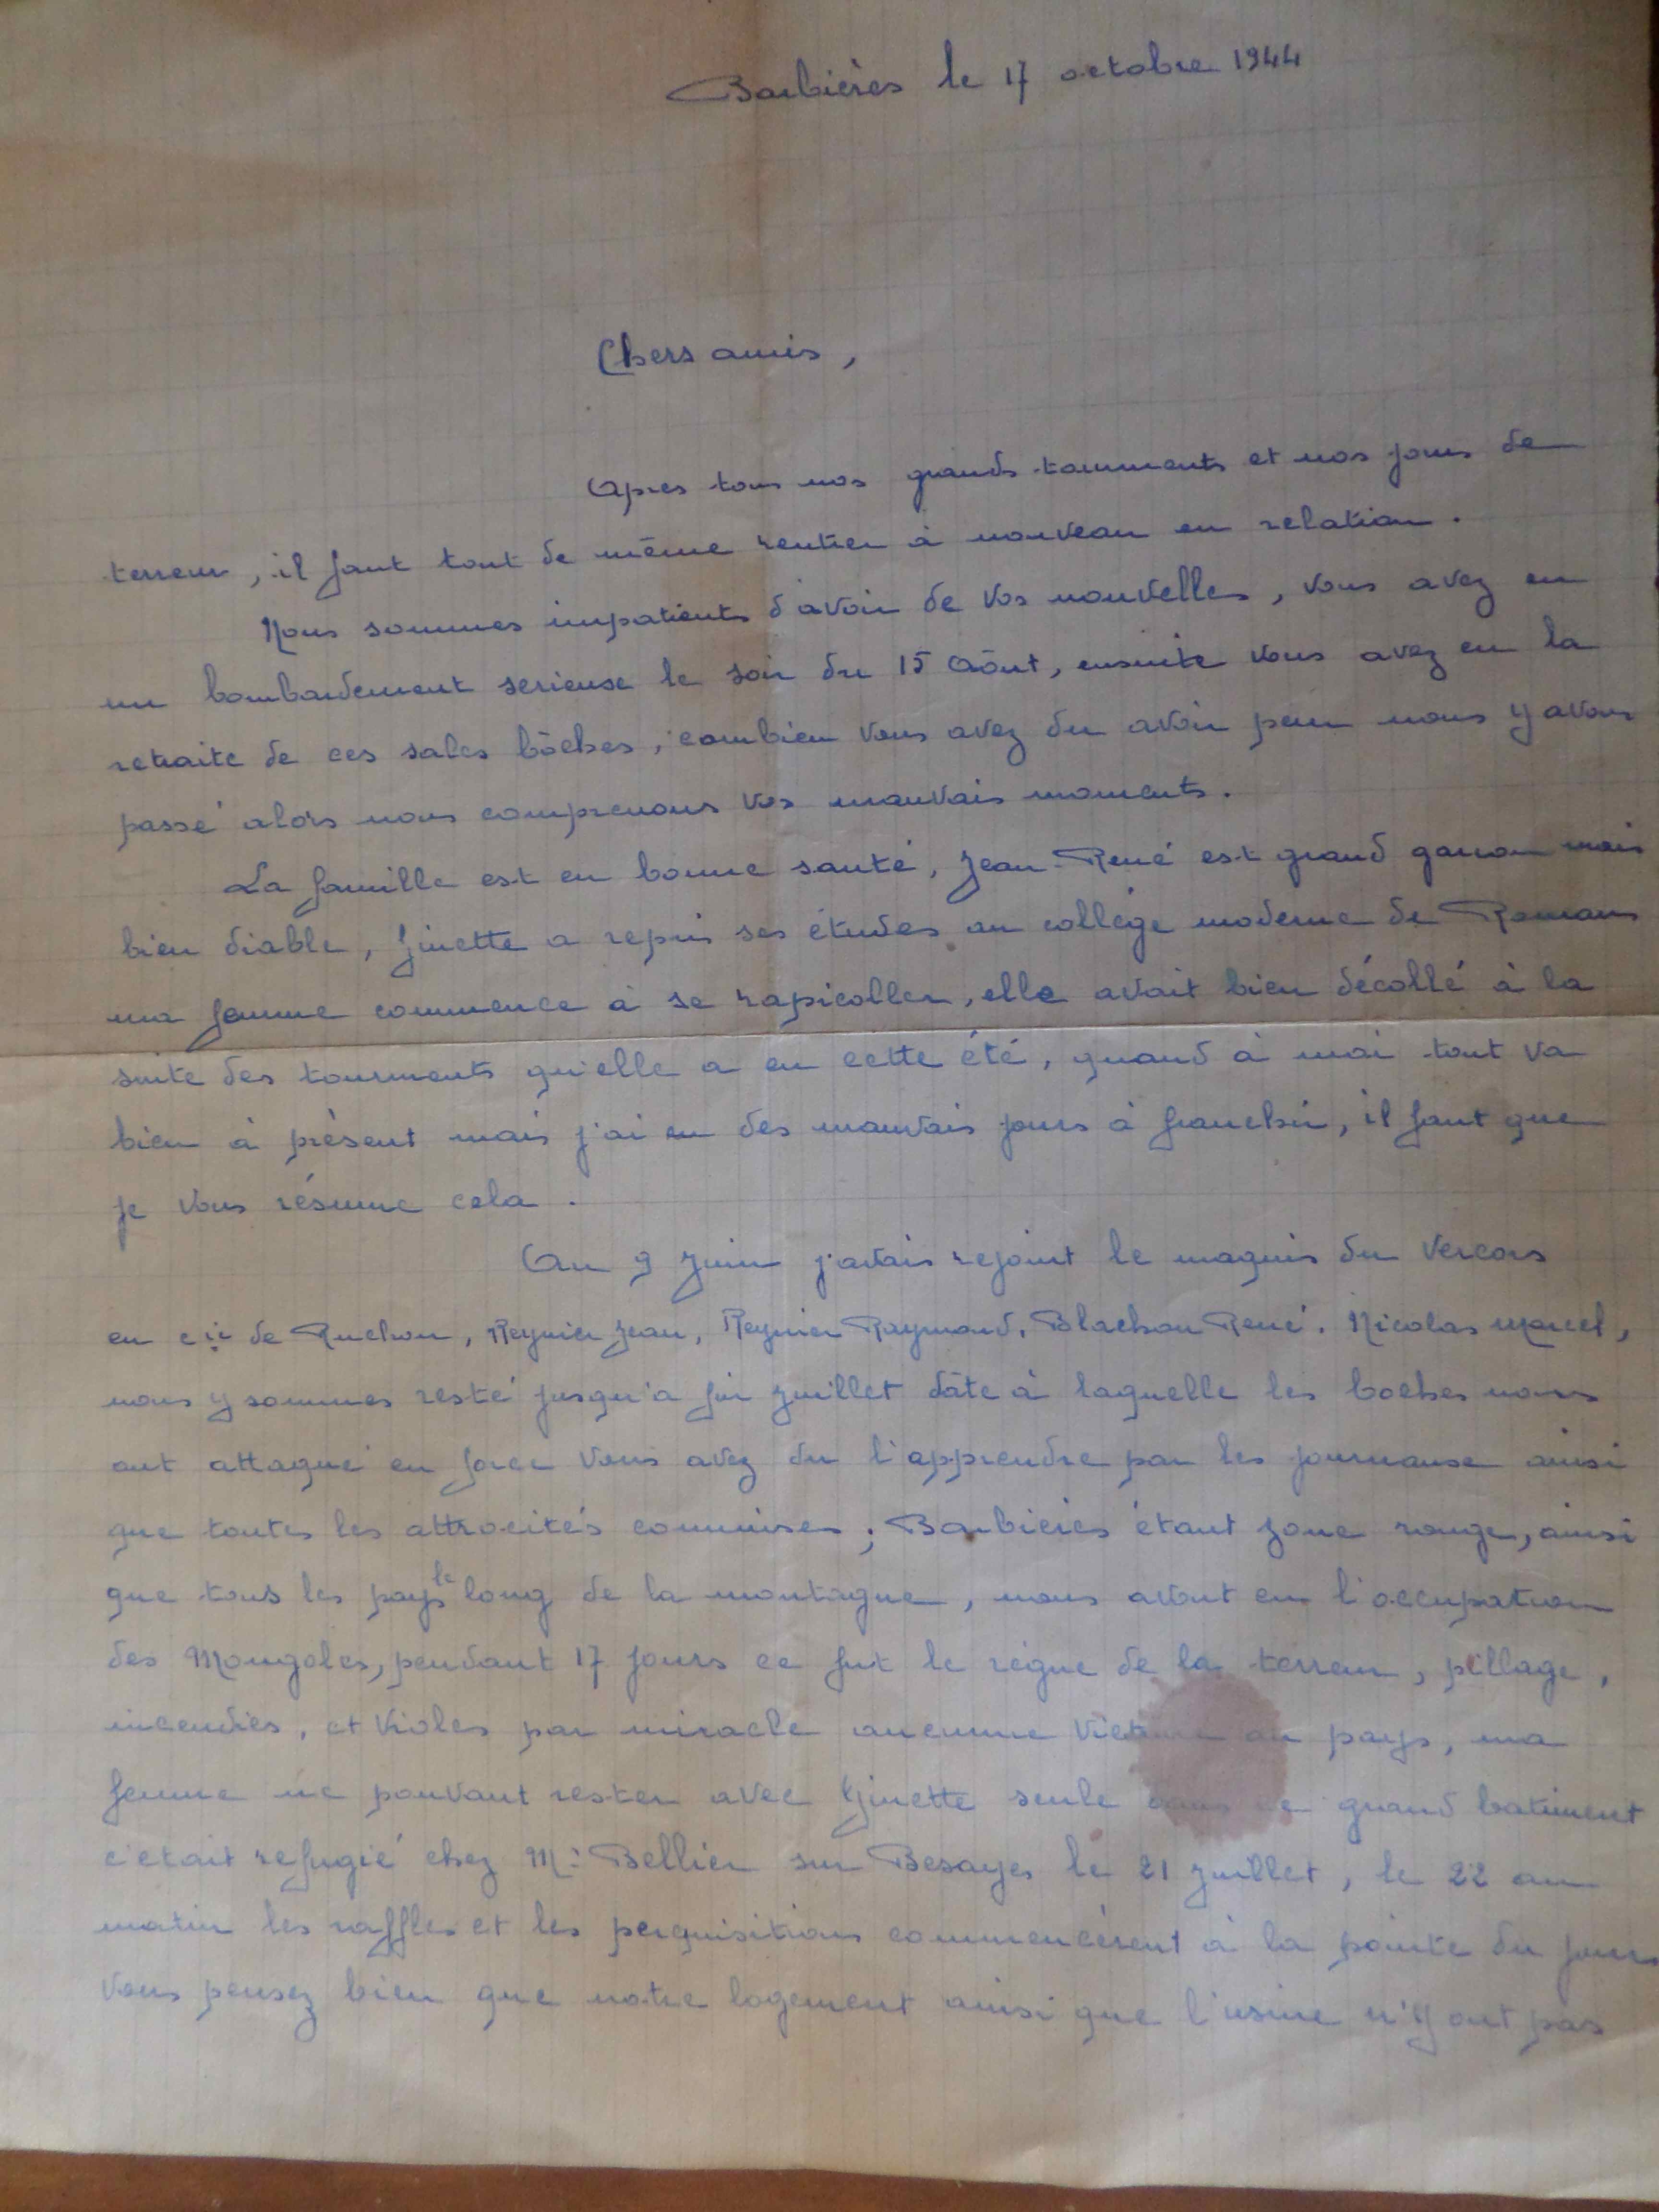 Barbières le 17 octobre 1944
Chers amis,
Apres tous nos grands tourments et nos jours de
terreur, il faut tout de même rentrer à nouveau en relation.
Nous sommes impatients d'avoir de vos nouvelles, vous avez eu
un bombardement serieuse le soir du 15 Aôut, ensuite vous avez eu la
retraite de ces sales bôches, combien vous avez du avoir peur nous y avons
passé alors nous comprenons vos mauvais moments.
La famille est en bonne santé, Jean-René est grand garçon mais
bien diable, Ginette a repris ses études au collège moderne de Romans
ma femme commence à se rapicoller, elle avait bien décollé à la
suite des tourments qu'elle a eu cette été, quand à moi tout va
bien à présent mais j'ai eu des mauvais jours à franchir, il faut que
je vous résume cela.
Au 9 Juin j'avais rejoint le maquis du Vercors
en cie de Ruchon, Reynier Jean, Reynier Raymond, Blachon René, Nicolas Marcel,
nous y sommes resté jusqu'a fin Juillet dâte à laquelle les boches nous
ont attaqué en force vous avez du l'apprendre par les journause ainsi
que toutes les attrocités commises; Barbières étant zone rouge, ainsi
que tous les pays le long de la montagne, nous avont eu l'occupation
des Mongoles, pendant 17 jours ce fut le règne de la terreur, pillage,
incendies, et violes par miracle aucunne victime au pays, ma
femme ne pouvant rester avec Ginette seule dans ce grand batiment
c'etait refugié chez Mr Bellier sur Besayes le 21 Juillet, le 22 au
matin les raffles et les perquisitions commencèrent à la pointe du jours
vous pensez bien que notre logement ainsi que l'usine n'y ont pas